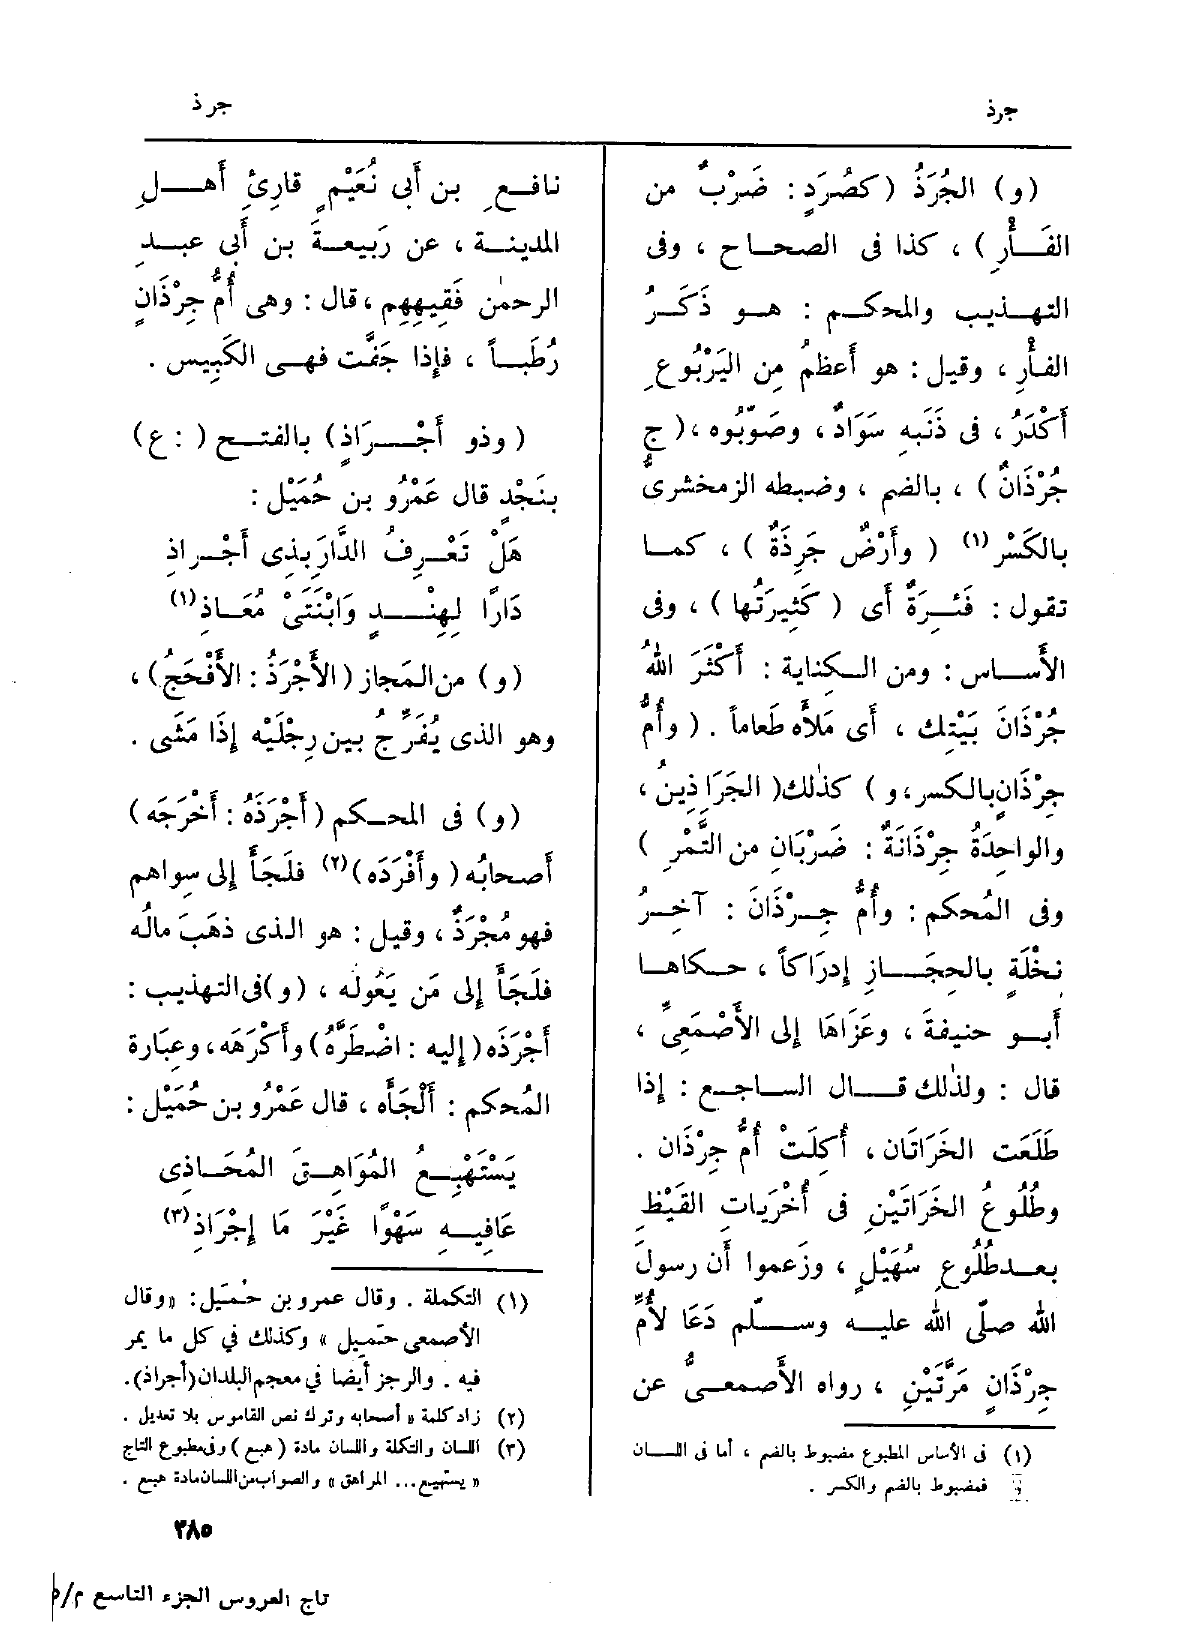 جرذ
جرذ
(و) الجُرَذُ (كصُرَدٍ: ضَرْبٌ من
الفَأْرِ)، كذا فى الصحاح، وفى
التهذيب والمحكم: هو ذَكَرُ
الفأْرِ، وقيل: هو أَعظمُ مِن اليَرْبُوعِ
أَكْدَرُ، فى ذَنَبِه سَوَادٌ، وصَوَّبُوه، (ج
جُرْذَانٌ)، بالضم، وضبطه الزمخشرى
بالكَسْر (١) (وأَرْضٌ جَرِذَةٌ)، كما
تقول: فَئِرَةٌ أَى (كَثِيرَتُها)، وفى
الأَساس: ومن الكناية: أَكْثَرَ اللهُ
جُرْذَانَ بَيْتِك، أَى مَلأَه طَعاماً. (وأُمُّ
جِرْذَانٍ بالكسر، و) كذلك (الجَرَاذِينُ،
والواحِدَةُ جِرْذَانَةٌ: ضَرْبَانِ من التَّمْرِ)
وفى المُحكم: وأُمُّ جِرْذَانَ: آخِرُ
نخْلَةٍ بالحِجَازِ إِدرَاكاً، حكاها
أَبو حنيفةَ، وعَزَاهَا إِلى الأَصْمَعِىِّ،
قال: ولذٰلك قال الساجع: إِذا
طَلَعَت الخَرَاتَان، أُكِلَتْ أُمُّ جِرْذَان.
وطُلُوعُ الخَرَاتَيْنِ فى أُخْرَياتِ القَيْظِ
بعد طُلُوعِ سُهَيْلٍ، وزَعموا أَن رسولَ
الله صلَّى الله عليه وسلَّم دَعَا لأُمِّ
جِرْذَانٍ مَرَّتَيْنِ، رواه الأَصمعىُّ عن
(١) فى الأساس المطبوع مضبوط بالضم، أما فى اللسان
فمضبوط بالضم والكسر.
نافعِ بن أَبى نُعَيْمٍ قارِئِ أَهلِ
المدينة، عن رَبِيعةَ بن أَبى عبدِ
الرحمٰن فَقِيهِهِم، قال: وهى أُمُّ جِرْذَانٍ
رُطَباً، فإِذا جَفَّت فهى الكَبِيس.
(وذو أَجْرَاذٍ) بالفتح (: ع)
بنَجْدٍ قال عَمْرُو بن حُمَيْل:
هَلْ تَعْرِفُ الدَّارَ بِذِى أَجْراذِ
دَارًا لِهِنْدٍ وَابْنَتَىْ مُعَاذِ (١)
(و) من المَجاز (الأَجْرَذُ: الأَفْحَجُ)،
وهو الذى يُفَرِّجُ بين رِجلَيْه إِذَا مَشَى.
(و) فى المحكم (أَجْرَذَهُ: أَخْرَجَه)
أَصحابُه (وأَفْرَدَه) (٢) فلَجَأَ إِلى سِواهم
فهو مُجْرَذٌ، وقيل: هو الذى ذهَبَ مالُه
فلَجَأَ إِلى مَن يَعُولُه، (و) فى التهذيب:
أَجْرَذَه (إِليه: اضْطَرَّهُ) وأَكْرَهَه، وعِبَارة
المُحكم: أَلْجَأَه، قال عَمْرُو بن حُمَيْل:
يَسْتَهْبِعُ المُوَاهِقَ المُحَاذِى
عَافِيهِ سَهْوًا غَيْرَ مَا إِجْرَاذِ (٣)
(١) التكملة. وقال عمرو بن حُمَيل: «وقال
الأصمعى حَميل» وكذلك في كل ما يمر
فيه. والرجز أيضا في معجم البلدان (أجراذ).
(٢) زاد كلمة «أصحابه وترك نص القاموس بلا تعديل.
(٣) اللسان والتكلة واللسان مادة (هبع) وفى مطبوع التاج
«يستهيع... المراهق» والصواب من اللسان مادة هبع.
٣٨٥
تاج العروس الجزء التاسع م/